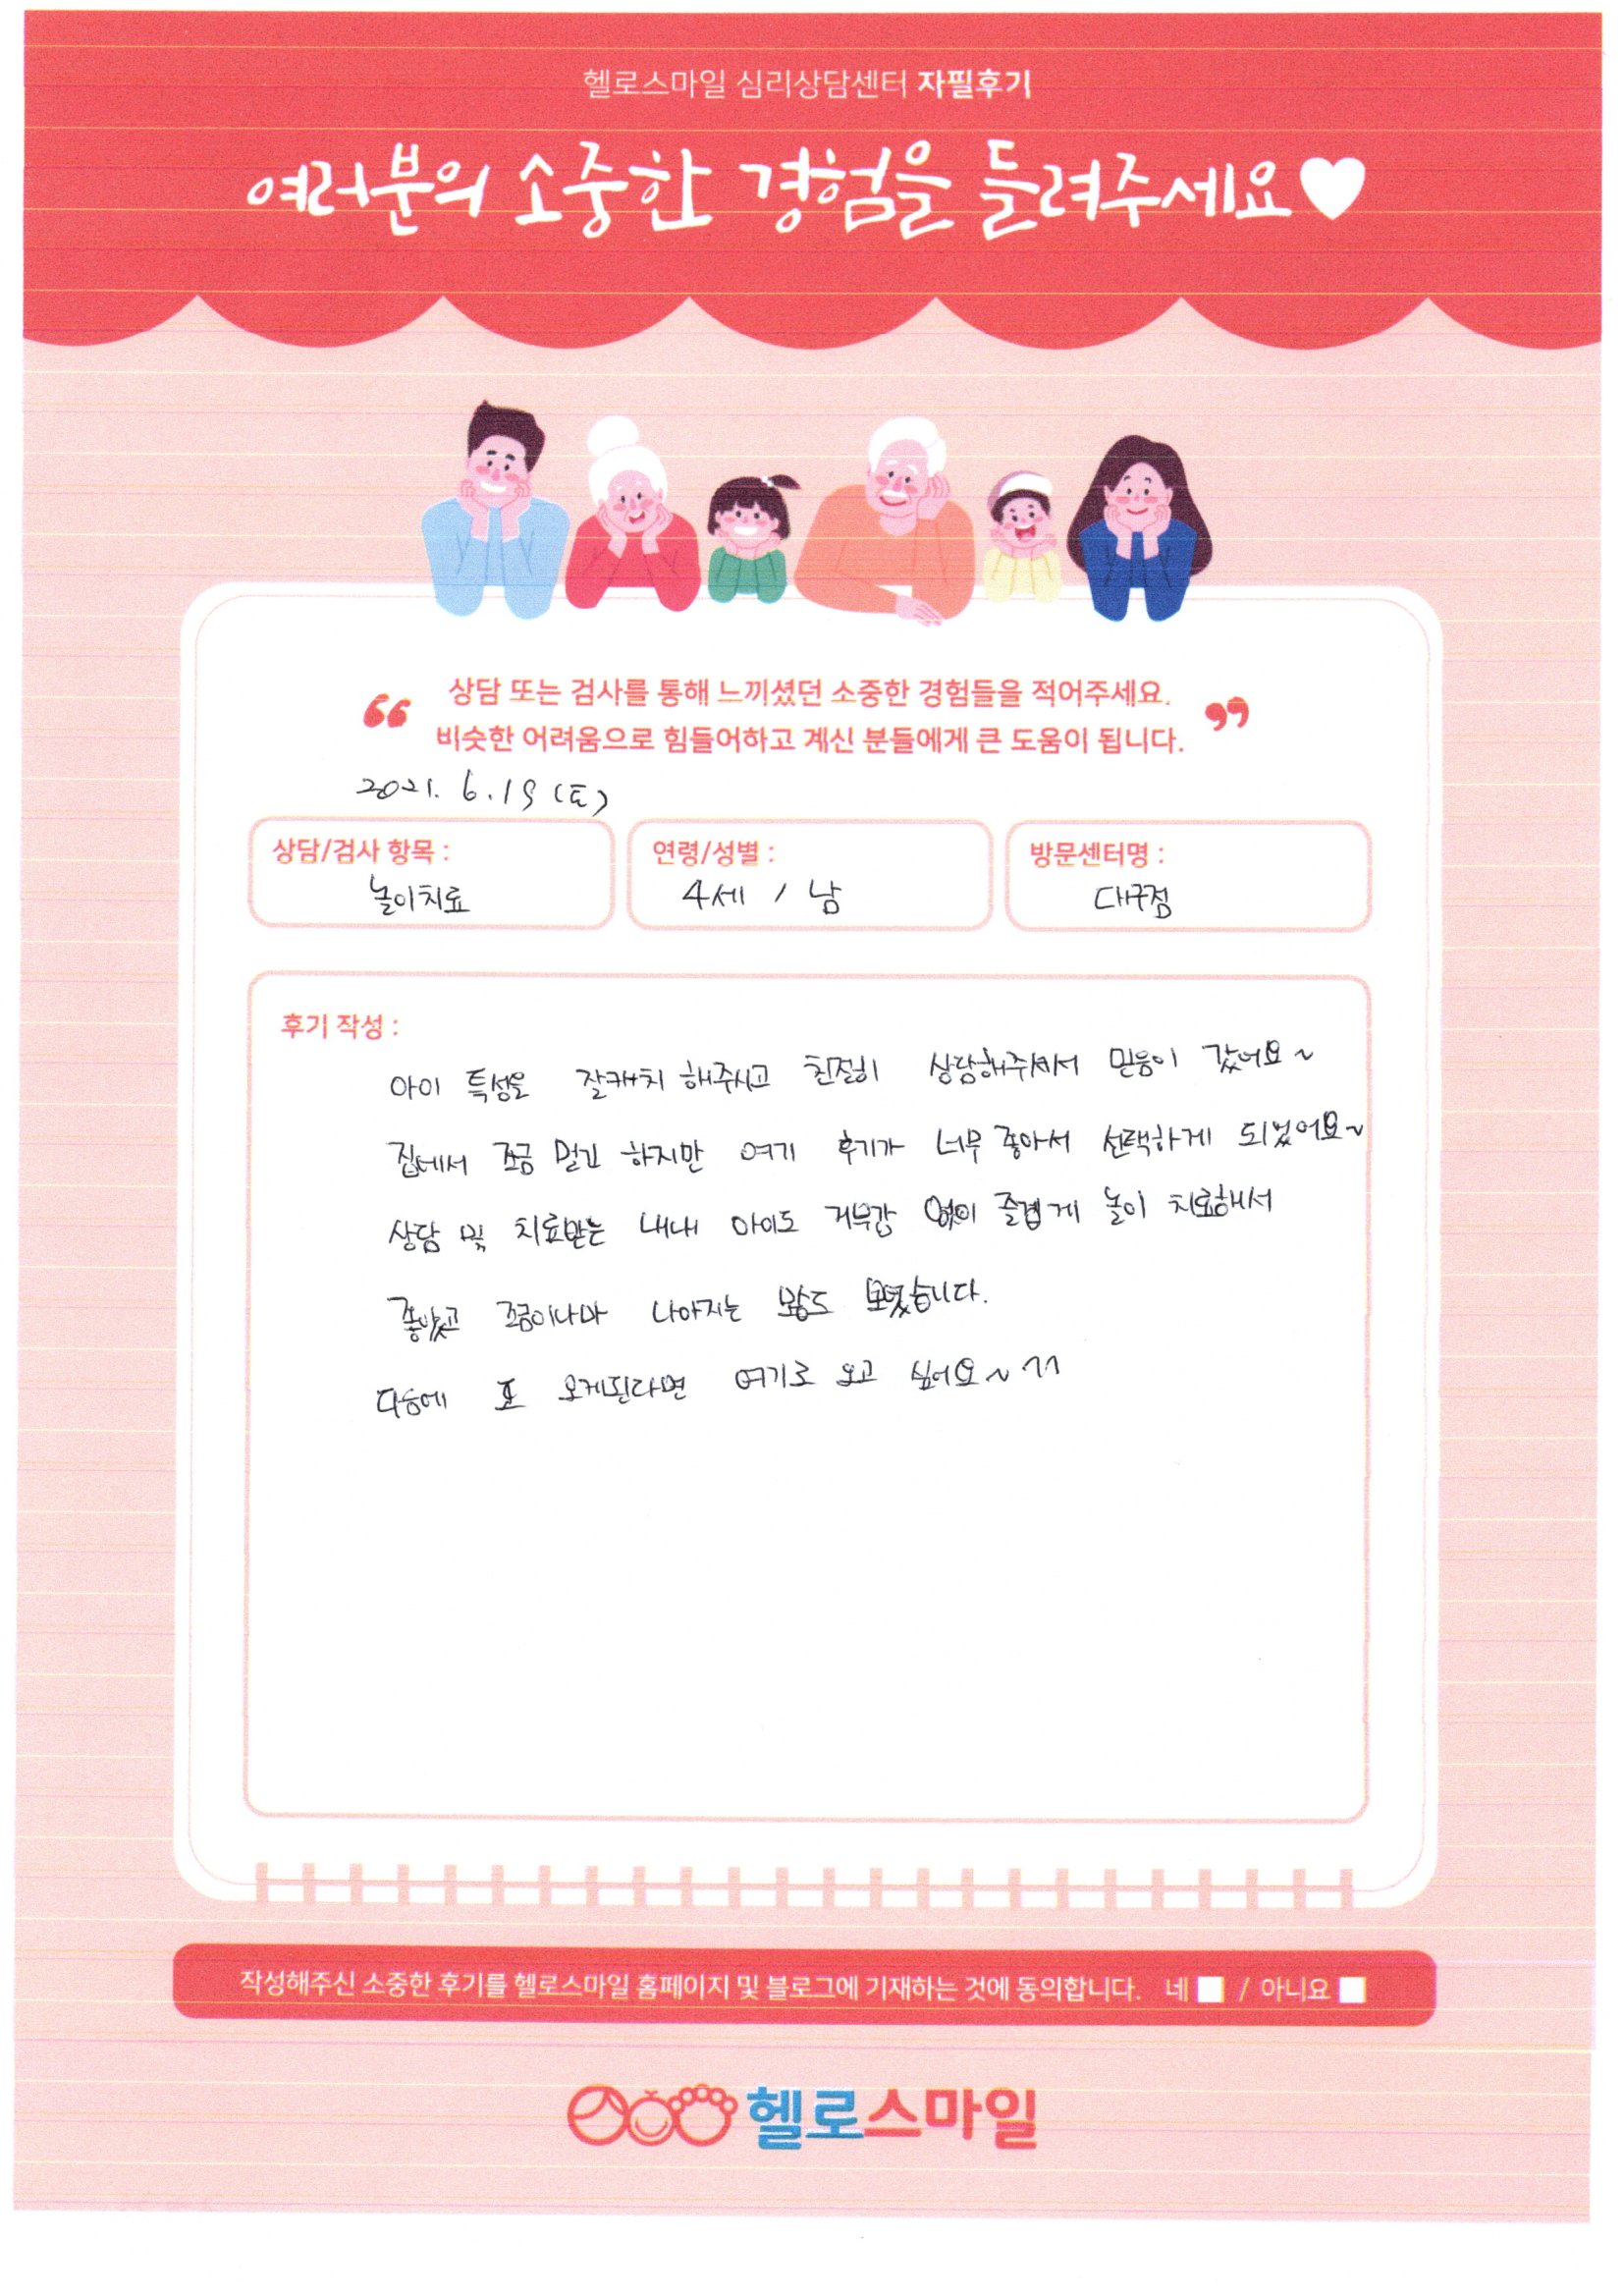 헬로스마일 심리상담센터 자필후기
여러분의 소중한 경험을 들려주세요♥
“ 상담 또는 검사를 통해 느끼셨던 소중한 경험들을 적어주세요.
비슷한 어려움으로 힘들어하고 계신 분들에게 큰 도움이 됩니다. ”
2021. 6.19 (토)
상담/검사 항목 :
놀이치료
연령/성별 :
4세 / 남
방문센터명 :
대구점
후기 작성 :
아이 특성을 잘캐치 해주시고 친절히 상담해주셔서 믿음이 갔어요~
집에서 조금 멀긴 하지만 여기 후기가 너무 좋아서 선택하게 되었어요~
상담 및 치료받는 내내 아이도 거부감 없이 즐겁게 놀이 치료해서
좋았고 조금이나마 나아지는 모습도 보였습니다.
다음에 또 오게된다면 여기로 오고 싶어요~ ^^
작성해주신 소중한 후기를 헬로스마일 홈페이지 및 블로그에 기재하는 것에 동의합니다. 네 ■ / 아니요 ■
헬로스마일